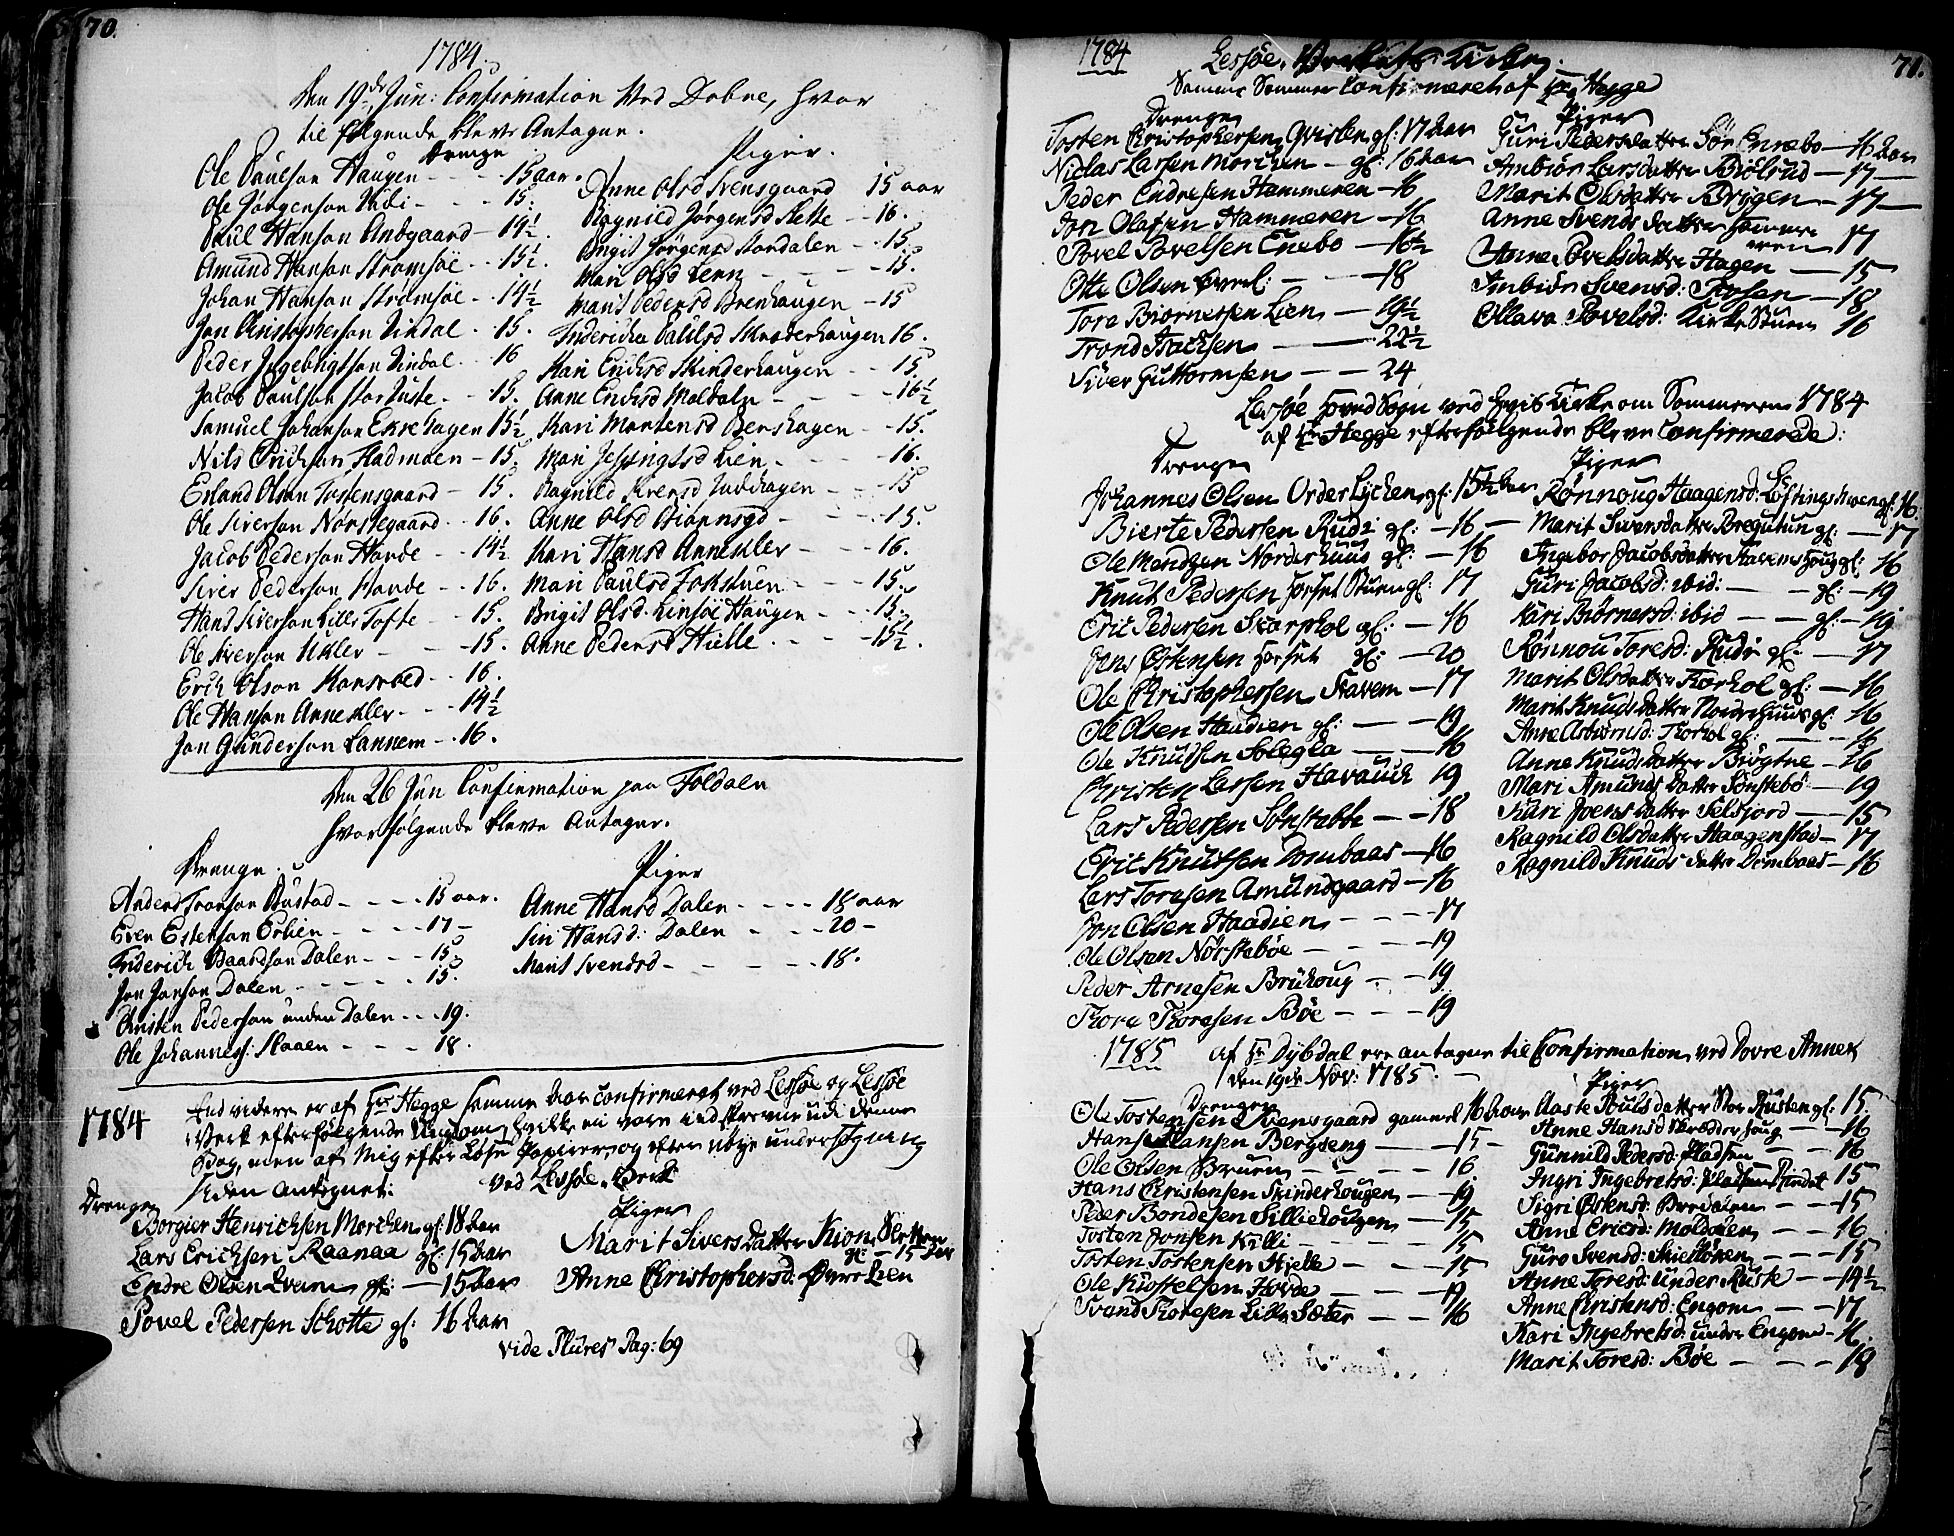 70.
1784.
Den 19de Jun: Confirmation Ved Dobre, hvor
til følgende bleve Antagne.
Drenge
Ole Paulson Haugen - - - 15 aar.
Ole Jørgenson Vibi - - - 15.
Paul Hanson Andgaard - 14½.
Amund Hanson Strømsøe - - 15½.
Johan Hanson Strømsøe - - 14½
Jon Christopherson Lindal - - 15.
Peder Ingebrigtson Lindal - - 16
Jacob Paulson Stor Ruste - - 15.
Samuel Johanson Ekrehagen 15½
Nils Erichson Stadmoen - 15.
Erland Olson Tostensgaard - 15.
Ole Siverson Nørstegaard - - 16.
Jacob Pederson Hovde - - 14½
Siver Pederson Hovde - - 16.
Hans Siverson Lille Tofte - - 15.
Ole Iverson Ukler - - - 15.
Erich Olson - - 16.
Ole Hanson Annekler - - - 14½
Jon Gunderson Lannem - - 16.
Piger.
Anne Olsd Svensgaard 15 aar
Ragnild Jørgensd Slette - - 16.
Brigit Jørgensd Stordalen - - 15.
Mari Olsd Lenn - - - - 15.
Marit Pedersd Brenhaugen - 15
Friderica Paulsd Skrøderhaugen 16.
Kari Erichsd Skinderhaugen - - 15.
Anne Erichsd Moldaln - - - 16½
Kari Mortensd Bershagen - - 15.
Mari Lien - - - 16.
Ragnild Iversd - - - 15
Anne Olsd - - - 15.
Kari Hansd Annekler - - - 16.
Mari Paulsd Fokstuen - - - 15.
Brigit Olsd: Linsøe Haugen - - - 15.
Anne Pedersd Hielle - - - 15½.
Den 26 Jun Confirmation paa Foldalen
hvor følgende bleve Antagne.
Drenge.
Anders Tronson Rustad - - - - 15 aar.
Even Estenson Erlien - - - - 17 -
Friderich Baardson Dalen - - - 15
Jon Jonson Dalen - - - - - 15.
Christen Pederson unden Dalen - - - 19.
Ole Johanness: Slaaen - - - 18.
Piger
Anne Hansd Dalen - - - - 18 aar
Siri Hansd: Dalen - - - 20 -
Marit Svendsd - - - - - 18.
1784
End videre er af Hr Hegge samme Aar confirmeret ved Lessøe og Lessøe
Verk efterfølgende Ungdom, hvilke ei vare indskrevne udi denne
Bog, men af Mig efter løse Papirer, og efter nøye undersøgning
siden antegnet.
ved Lessøe-Verk
Drenge
Borgier Henrichsen Morchen gl: 18 Aar
Lars Erichsen Raanaa gl: 15 Aar
Endre Olsen Qvam gl: - 15 Aar
Povel Pedersen Schotte gl: 16 Aar
Piger
Marit Sivers Datter Kion Sletten
gl: - 15 Aar
Anne Christophersd: Øvre Lien
vide Plures Pag: 69
71.
1784 Lessøe-Verkets Kirke.
Samme Sommer Confirmeret af Hr Hegge
Drenge
Tosten Christophersen Qvislen gl: 17 Aar
Niclas Larsen Morchen - gl: 16 Aar
Peder Endresen Hammeren - 16
Jon Olafsen Hammeren - 16
Povel Povelsen Enebo - 16½
Otte Olsen Øverl: - - - 18
Tore Biørnersen Lien - 19½
Trond Isachsen - - 22½
Siver Guttormsen - - 24
Piger
Guri Pedersdatter Sør Ennebo - 16 Aar
Ambiør Larsdatter Biølrud - 17 -
Marit Olsdatter Brygen - 17 -
Anne Svends datter Hamme
ren 17
Anne Povelsdatter Hagen - 15
Imbiør Svensd: - 18
Ollava Povelsd: Kirke Stuen 16
Lessøe Hoved Sogn ved Kirke om Sommeren 1784
af Hr Hegge efterfølgende bleve Confirmerede:
Drenge
Johannes Olsen Order Lychen gl: 15½ Aar
Bierte Pedersen Rudi gl: - 16 -
Ole Mendtzen Norderhuus gl: - 16
Knut Pedersen Horset Stuen gl: 17
Eric Pedersen Skarphol gl: - 16
Jens Østensen Horset gl: - 20
Ole Christophersen Stavem - 17
Ole Olsen Haudien gl: - - 19
Ole Knudsen Solegla - - 16
Christen Larsen Havauch 19
Lars Pedersen Sønstebbe - - 18
Eric Knutsen Dombaas - 16
Lars Toresen Amundgaard - 16
Jon Olsen Haadien - - - 17
Ole Olsen Nørstebøe - - - 19
Peder Arnesen Brühoug - - - 19
Thore Thoresen Bøe - - - 19
Piger
Rønnoug Haagensd: gl: 16
Marit Siversdatter Bregutun gl: - 17
Ingebor Jacobsdatter Stavems Houg gl: 16
Guri Jacobsd: ibid: - - gl: - 19
Kari Biørnersd: ibid - - gl: - 19
Rønnou Toresd: Rudi gl: - 17
Marit Olsdatter Korhol gl: - 16
Marit Knudsdatter Nordre Huus gl: 16
Anne Asbiørnsd: Korhol gl: - - 16
Anne Knudsdatter Brøytne - 16
Mari Amunds Datter Sønstebø - 19
Kari Joens datter Selsjord - - 15
Ragnild Olsdatter Haagenstad - 17
Ragnild Knuds datter Dombaas - 16
1785 af Hr Dybdal ere antagne til Confirmation ved Dovre Annex
den 19de Nov: 1785.
Drenge
Ole Tostensen Svensgaard gammel 16 Aar
Hans Hansen Bergseng - - 15 -
Ole Olsen Bruen - - - 16
Hans Christensen Skinderhougen - 19
Peder Bondesen Lilliehougen - 15
Tosten Jonsen Killi - - - 15
Tosten Tostensen Hielle - - - 15
Ole Kiøstelsen Hovde - - - 19
Svand Thoresen Lille Sæter - - 16
Piger
Aaste Pouls datter Stor Rusten gl: 15
Anne Hansd Skrødder houg - - 16
Gunnild Pedersd: Pladsen - - - 16
Ingri Ingebretsd: Pladsen Rindet 15
Sigri Estensd: Bredalen - - 15
Anne Ericsd: Moldalen - - 16
Guro Svensd: Skielløken - - - 15
Anne Toresd: under Ruste - - 14½
Anne Christensd: Engom - - 17
Kari Ingebretsd: under Engom - 16.
Marit Toresd: Bøe - - - - 18